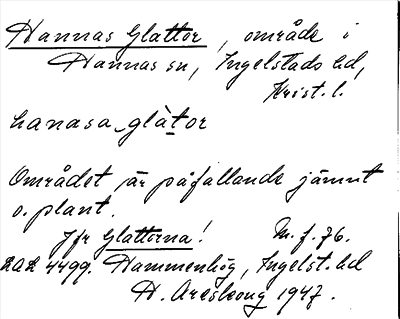 Hannas Glattor, område i
Hannas sn, Ingelstads hd,
Krist. l.
hanasa glàtor
Området är påfallande jämnt
o. plant.
Jfr Glattorna! M. f. 76.
LAL 4499. Hammenhög, Ingelst. hd
H. Areskoug 1947.